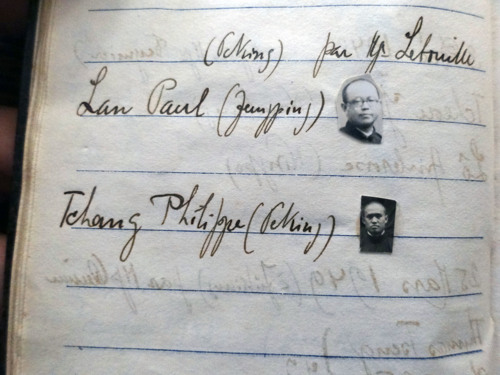 (Peking) par Mgr Lebouille
Lan Paul (Jungping)
Tchang Philippe (Peking)